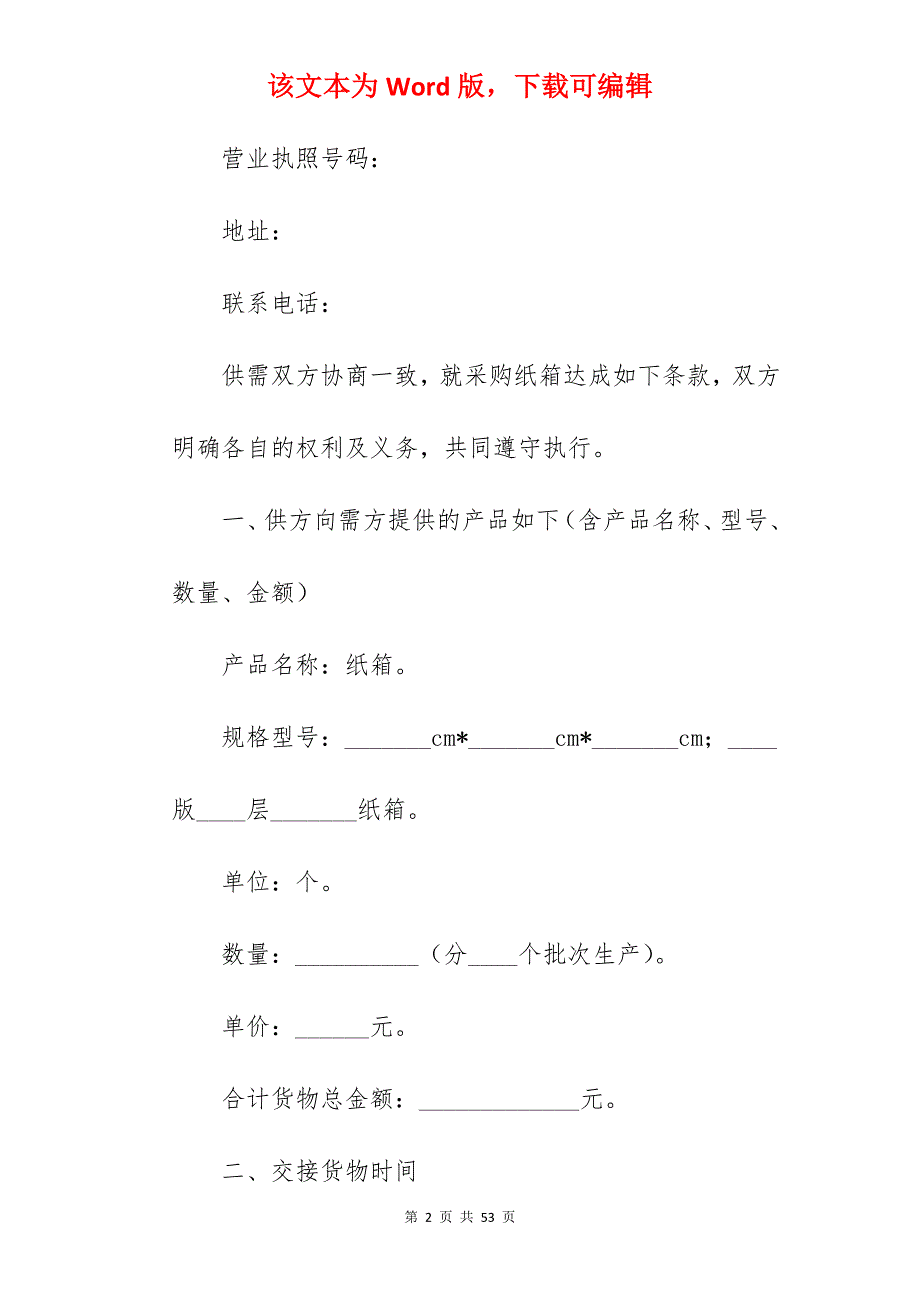 该文本为 Word 版，下载可编辑
营业执照号码：
地址：
联系电话：
供需双方协商一致，就采购纸箱达成如下条款，双方
明确各自的权利及义务，共同遵守执行。
一、供方向需方提供的产品如下（含产品名称、型号、
数量、金额）
产品名称：纸箱。
规格型号：_______cm*_______cm*_______cm；____
版____层_______纸箱。
单位：个。
数量：__________（分____个批次生产）。
单价：______元。
合计货物总金额：_____________元。
二、交接货物时间
第 2 页 共 53 页